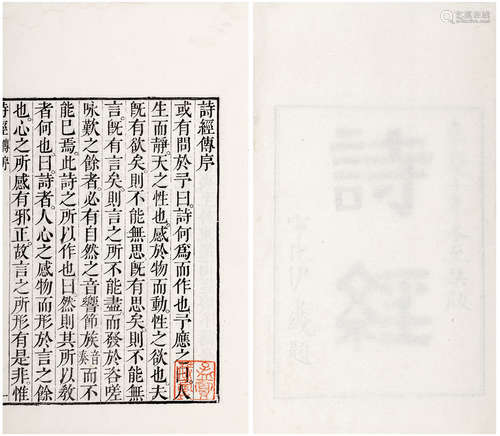 詩經傳序
或有問於予曰詩何爲而作也予應之曰人
生而靜天之性也感於物而動性之欲也夫
旣有欲矣則不能無思旣有思矣則不能無
言旣有言矣則言之所不能盡而發於咨嗟
咏歎之餘者必有自然之音響節族音奏而不
能已焉此詩之所以作也曰然則其所以敎
者何也曰詩者人心之感物而形於言之餘
也心之所感有邪正故言之所形有是非惟
詩經傳序
一
詩經